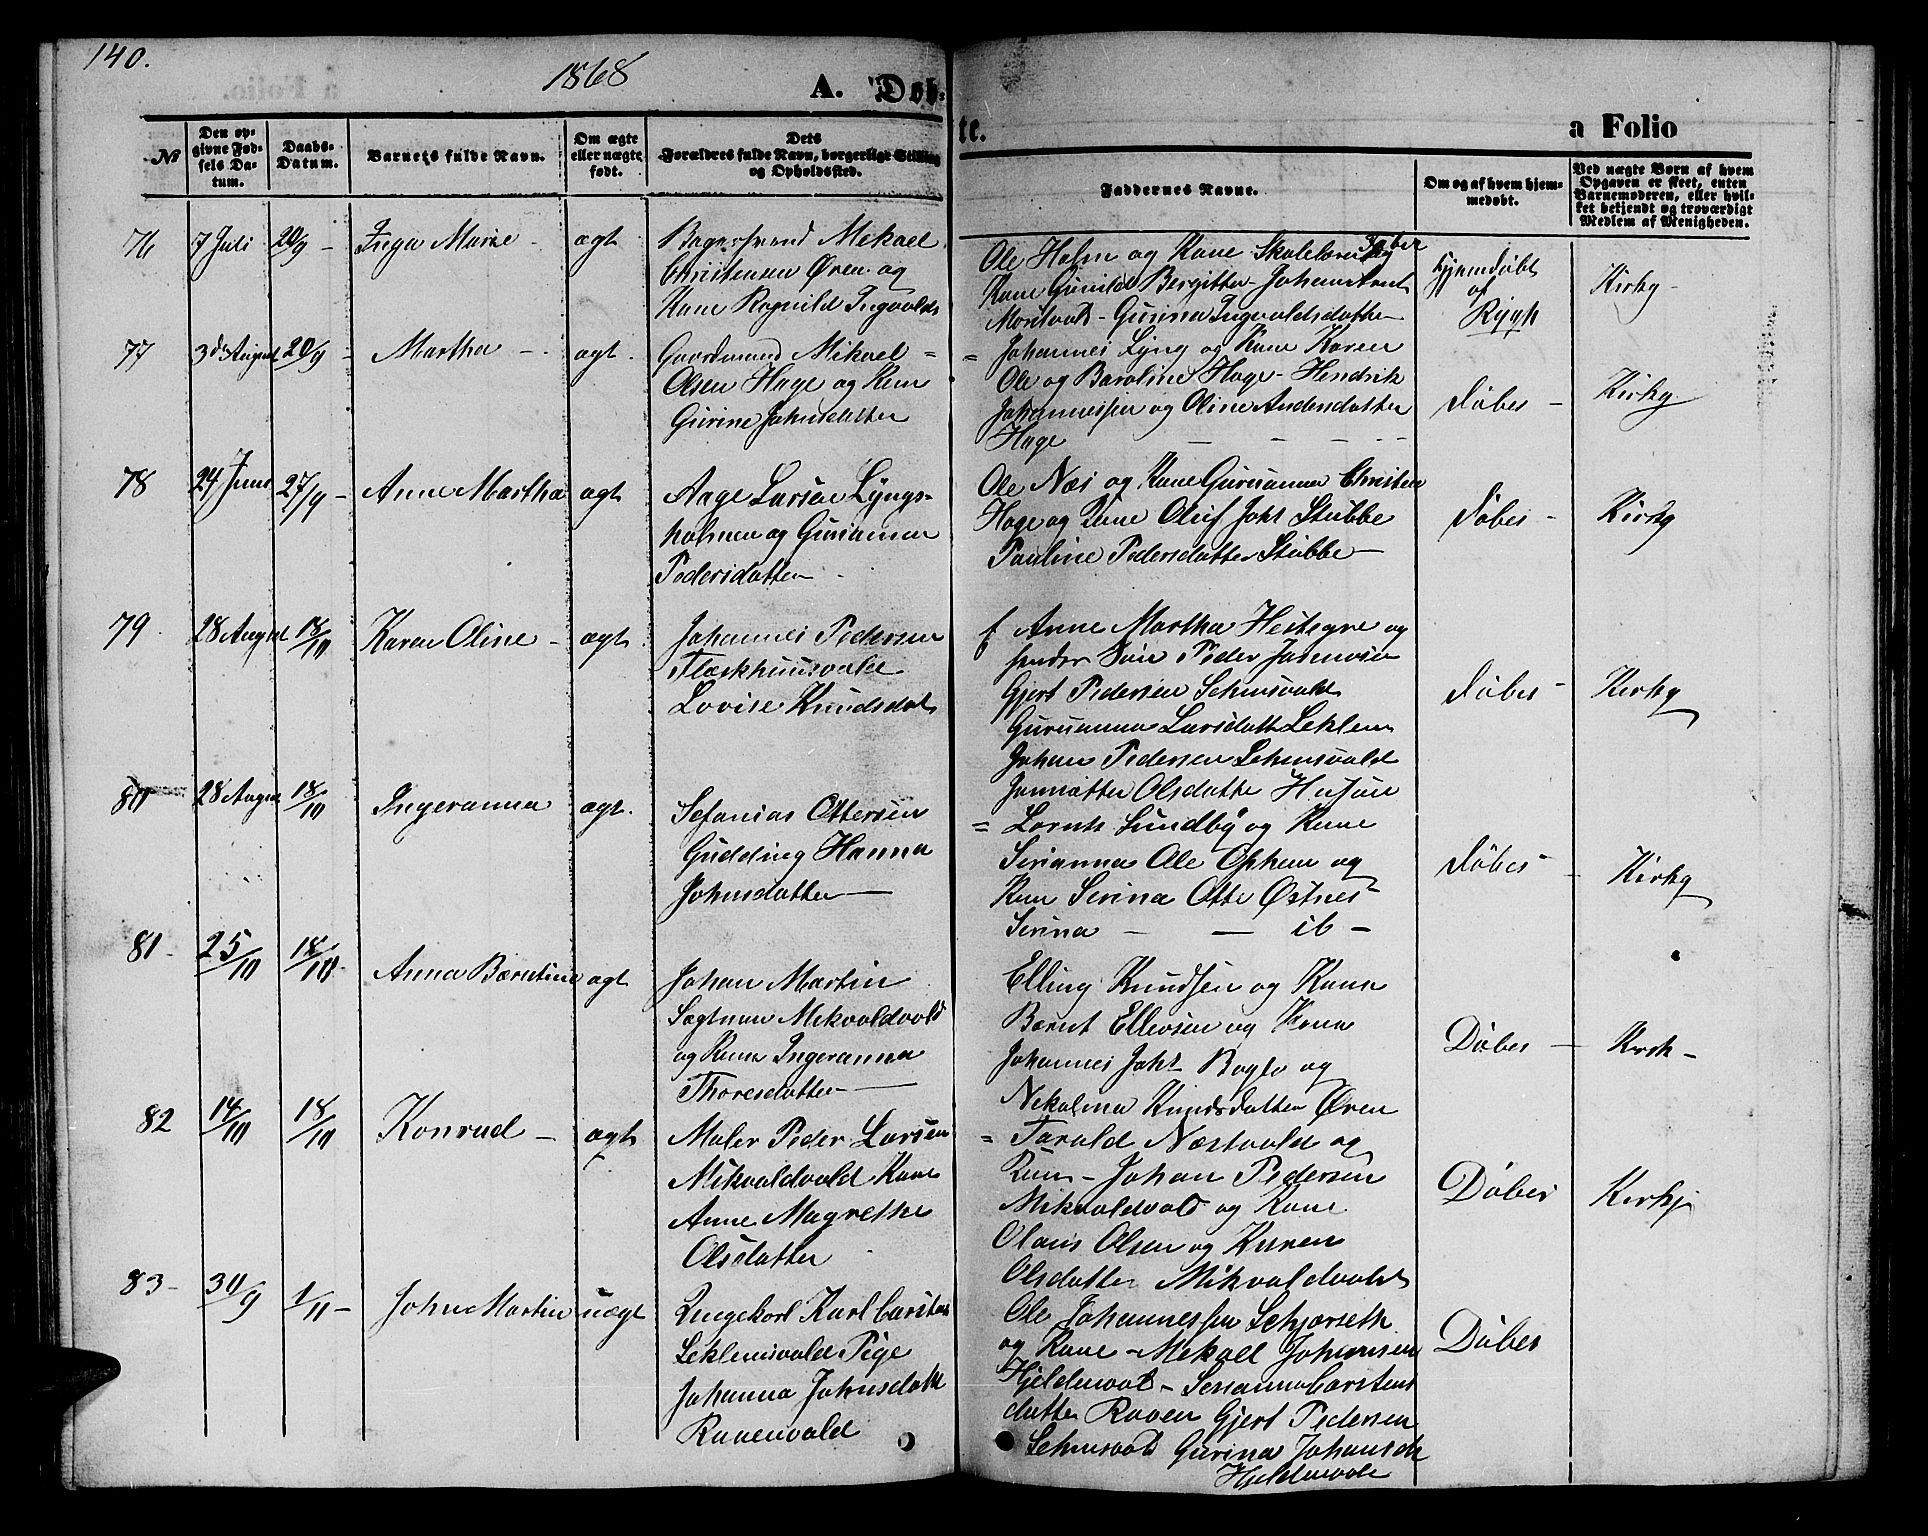 140.
1868
A. Døb-
te.
a Folio
№
Den op-
givne Fød-
sels Da-
tum.
Daabs-
Datum.
Barnets fulde Navn.
Om ægte
eller uægte
født.
Dets
Forældres fulde Navn, borgerlige Stilling
og Opholdssted.
Faddernes Navne.
Om og af hvem hjem-
medøbt.
Ved uægte Børn af hvem
Opgaven er skeet, enten
Barnemoderen, eller hvil-
ket bekjendt og troværdigt
Medlem af Menigheden.
76 7 Juli 20/9 - Inga Marie - ægt
Mekael
Christensen Øren og
Kone Ragnild Ingvalds
Ole Holm og Kone
Kone Gunild Bergitte
Gurina Ingvaldsdatter
Hjemdøbt
af
Rygh
Kirke
77 3de August 20/9 - Martha - ægt
Gaardmand Mikael
Olsen Hage og Kone
Gurine Johnsdatter
= Johannes Lyng og Kone Karen
Ole og Baroline Hage - Hendrik
Johannessen og Oline Andersdatter
Hage
Døbes - Kirke
78 24 Juni 27/9 - Anne Martha ægt
Aage Larsen Lyngs-
holmen og Gurianna
Pedersdatter
Ole Næs og Kone Guruanna Christen
Hage og Kone Oluf Johs Stubbe
Pauline Pedersdatter Stubbe -
Døbes - Kirke
79. 28 August 18/10 Karen Oline - ægt
Johannes Pedersen
Lovise Knudsdat
Anne Martha Hestegre og
hendes Søn Peder
Gjert Pedersen
Guruanna Larsdatt Leklem
Johan Pedersen
Olsdatter
Døbes - Kirke
80 28 August 18/10 Ingeranna ægt.
Sefanias Ottersen
Gudding Hanna
Johnsdatter -
= Lornts Sundby og Kone
Serianna Ole Ophem og
Kone Serina Otte Østnes
Serina - - ib -
Døbes - Kirke
81 - 25/10 18/10 Anna Bærntine ægt
Johan Martin
Mikvoldvold
og Kone Ingeranna
Thoresdatter -
Elling Knudsen og Kone
Bærnt Ellevsen og Kone
Johannes Johs Boglo og
Nikolina Knudsdatter Øren
Døbes - Kirk -
82 14/10 18/10 Konrad - ægt
Maler Peder Larsen
Mikvoldvold Kone
Anne Magrethe
Olsdatter
= Tarald Næstvold og
Kone - Johan Pedersen
Mikvoldvold og Kone
Olaus Olsen og Karen
Olsdatter Mikvoldvold
Døbes Kirke
83 - 30/9 1/11 - John Martin uægt
Ungekarl Karl Carstens
Leklemsvald Pige
Johanna Johnsdatt
Ravenvald
Ole Johannessen Schjerseth
og Kone - Mekael Johansen
Hjeldenvold - Serianna Carstens
datter Raven Gjert Pedersen
Gurina Johansdt
Hjeldenvold
Døbes